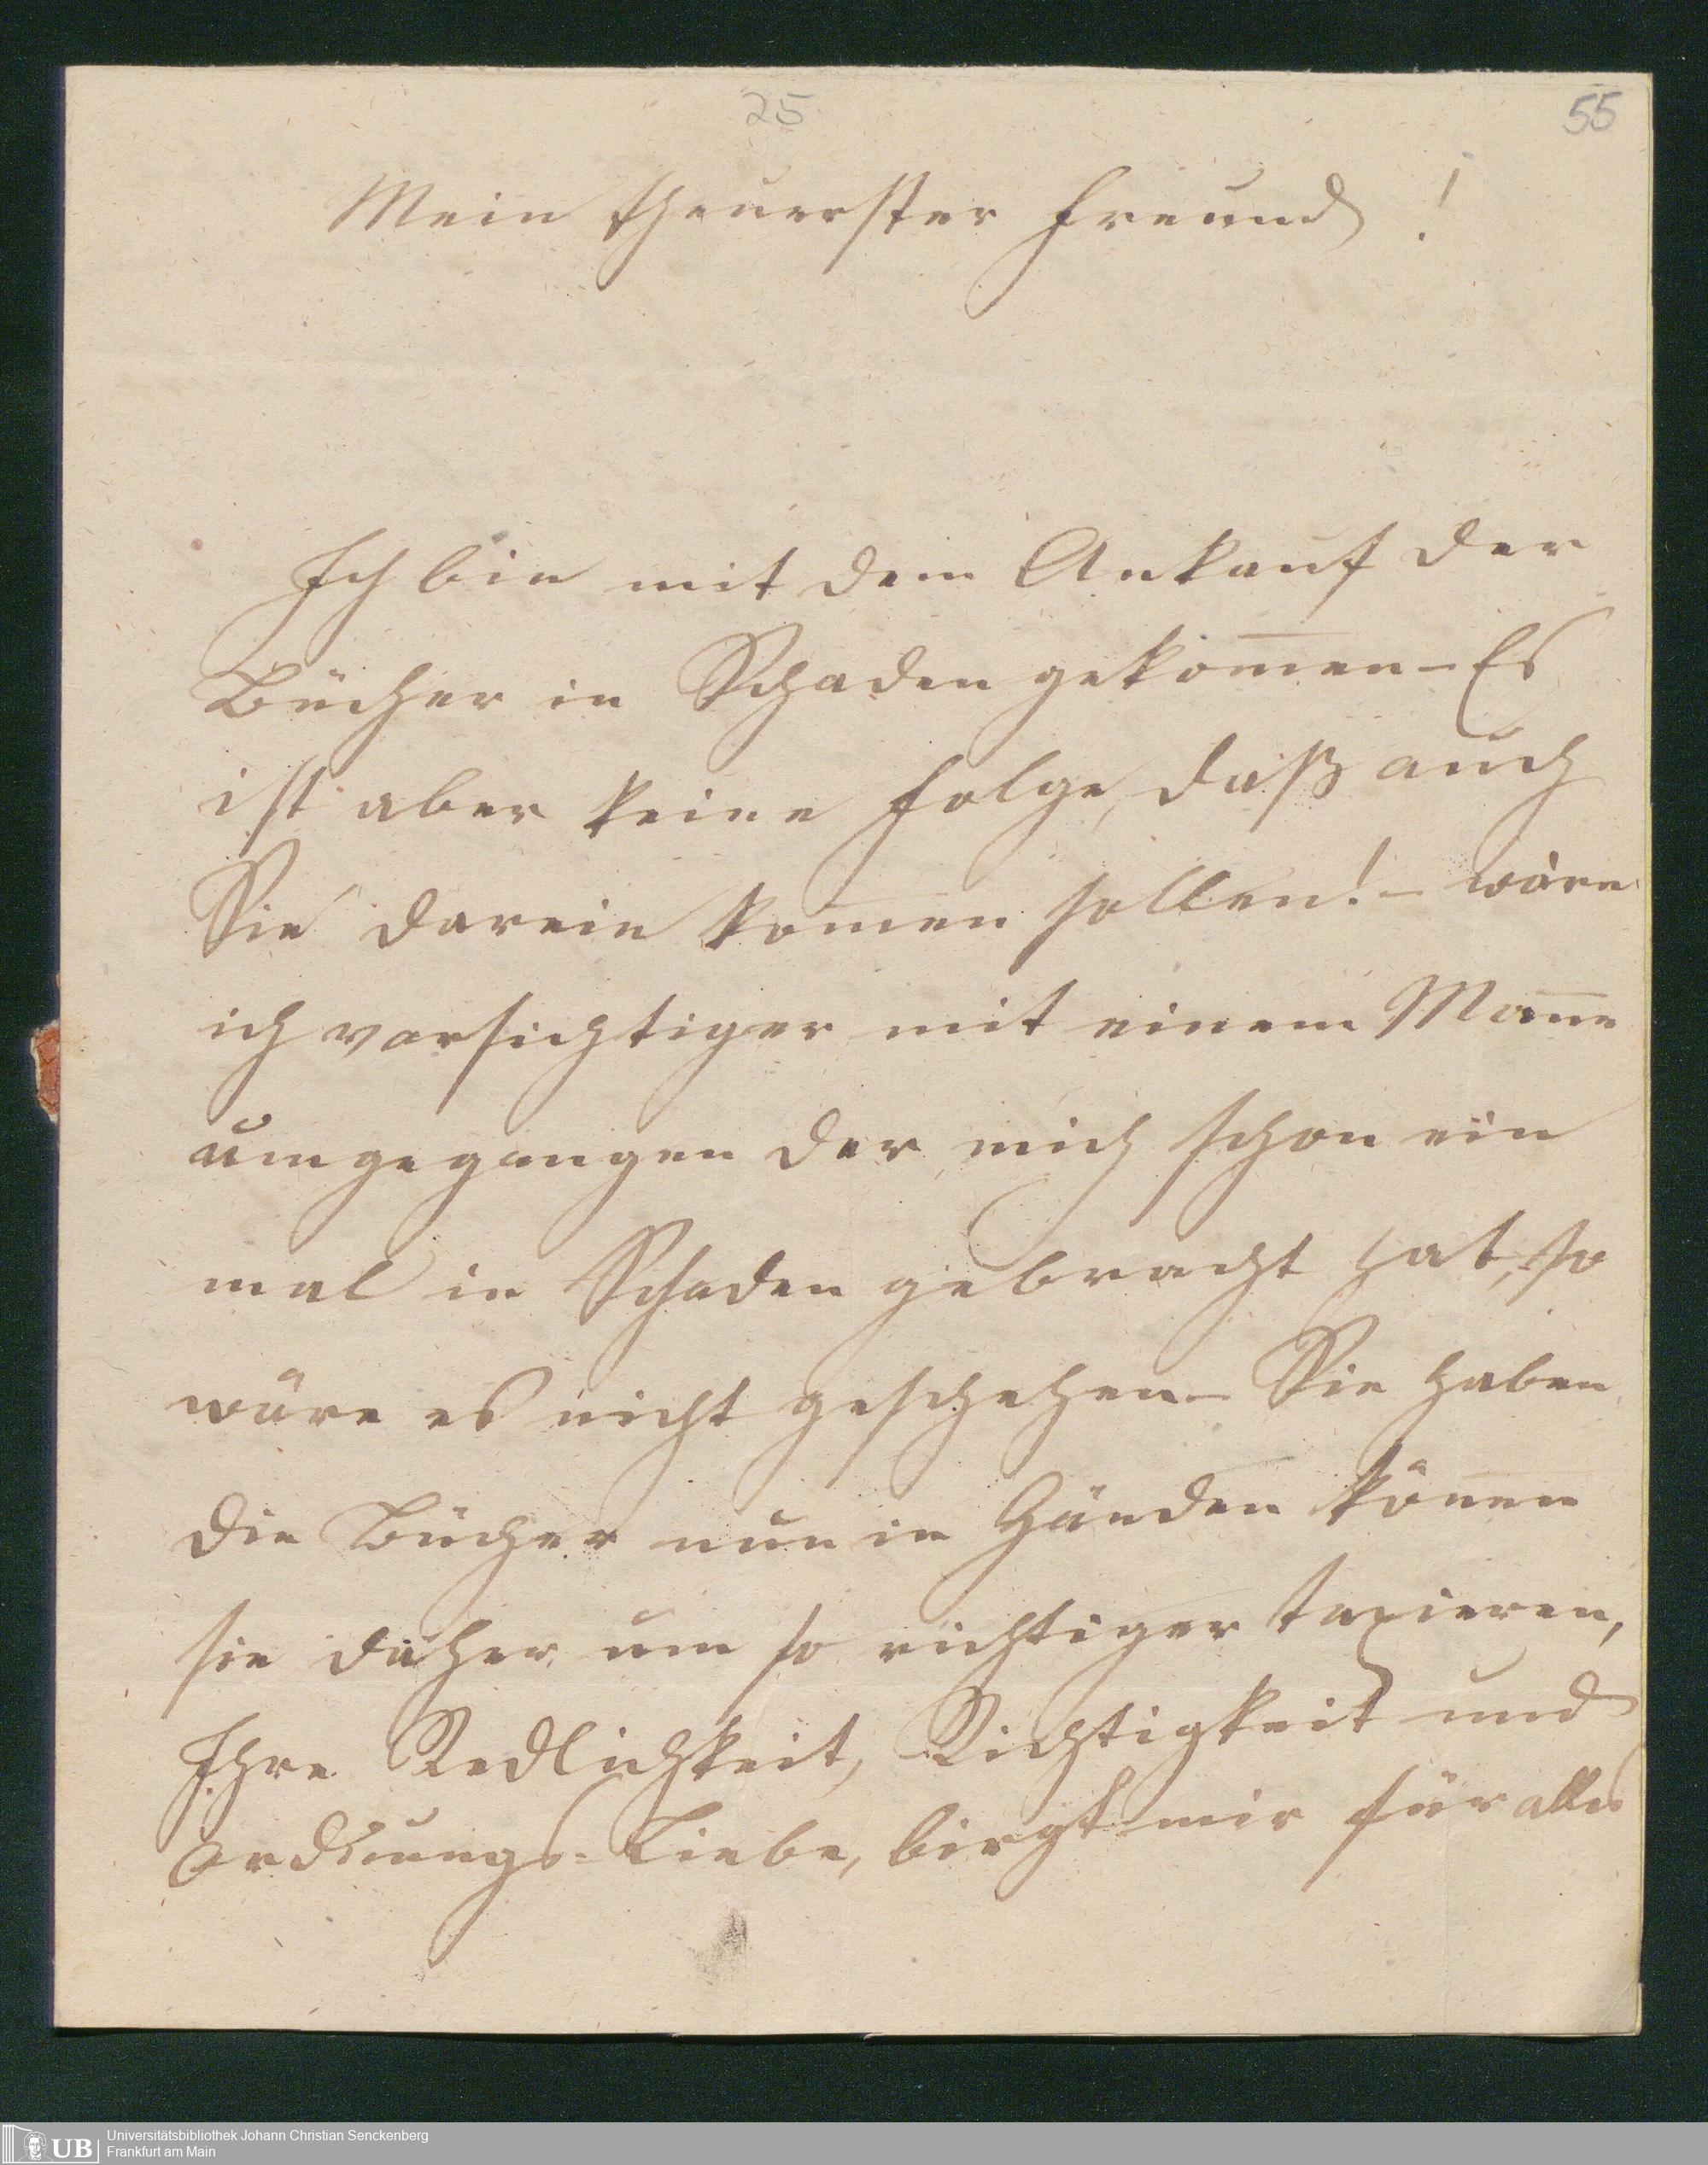 25
55
Mein theuerster Freund!
Ich bin mit dem Ankauf der
Bücher in Schaden gekom̅en – Es
ist aber keine Folge, daß auch
Sie darein kom̅en sollen! – wäre
ich vorsichtiger mit einem Man̅e
umgegangen der mich schon ein
mal in Schaden gebracht hat, so
wäre es nicht geschehen – Sie haben
die Bücher nun in Händen kön̅en
sie daher um so richtiger taxieren,
Ihre Redlichkeit, Richtigkeit und
Ordnungs-Liebe, birgt mir für alles
UB
Universitätsbibliothek Johann Christian Senckenberg
Frankfurt am Main